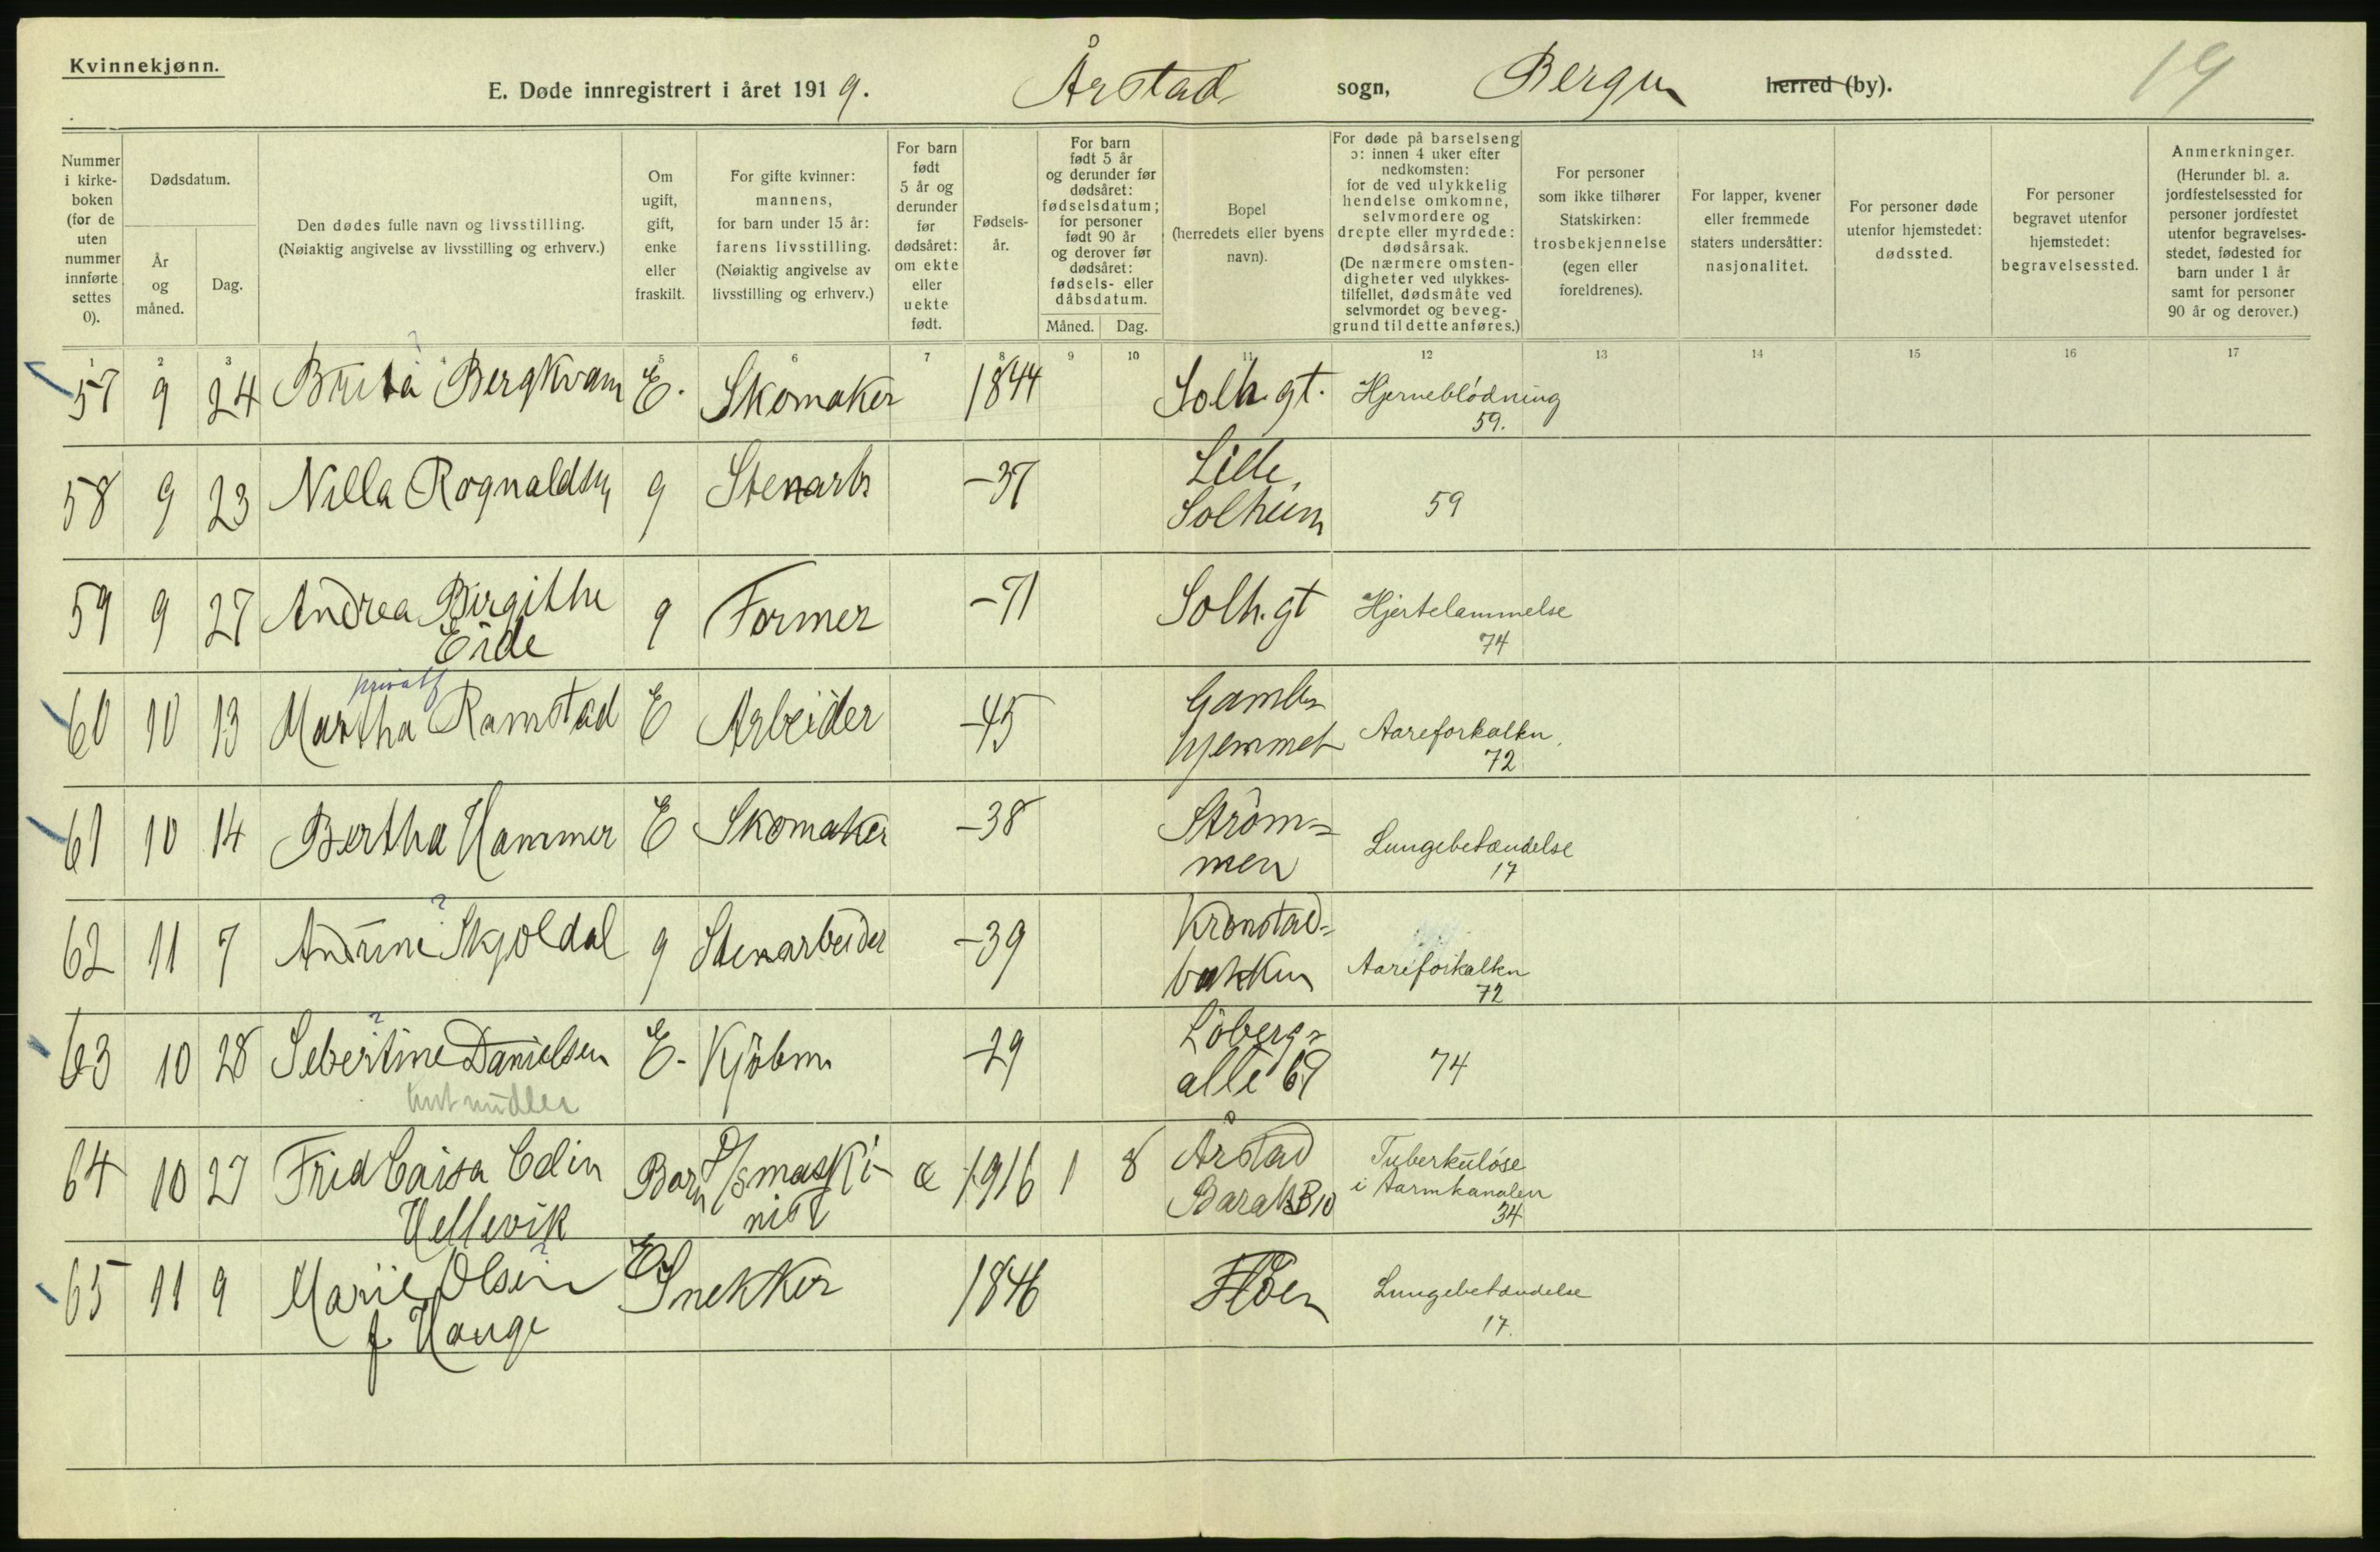 Kvinnekjønn.
E. Døde innregistrert i året 1919. Årstad sogn, Bergen herred (by). 19
Nummer i kirke-boken (for de uten nummer innførte settes 0).
Dødsdatum.
År og måned.
Dag.
Den dødes fulle navn og livsstilling.
(Nøiaktig angivelse av livsstilling og erhverv.)
Om ugift, gift, enke eller fraskilt.
For gifte kvinner: mannens, for barn under 15 år: farens livsstilling.
(Nøiaktig angivelse av livsstilling og erhverv.)
For barn født 5 år og derunder før dødsåret: om ekte eller uekte født.
Fødsels-år.
For barn født 5 år og derunder før dødsåret: fødselsdatum; for personer født 90 år og derover før dødsåret: fødsels- eller dåbsdatum.
Måned. Dag.
Bopel (herredets eller byens navn).
For døde på barselseng ɔ: innen 4 uker efter nedkomsten: for de ved ulykkelig hendelse omkomne, selvmordere og drepte eller myrdede: dødsårsak. (De nærmere omsten-digheter ved ulykkes-tilfellet, dødsmåte ved selvmordet og beveg-grund til dette anføres.)
For personer som ikke tilhører Statskirken: trosbekjennelse (egen eller foreldrenes).
For lapper, kvener eller fremmede staters undersåtter: nasjonalitet.
For personer døde utenfor hjemstedet: dødssted.
For personer begravet utenfor hjemstedet: begravelsessted.
Anmerkninger.
(Herunder bl. a. jordfestelsessted for personer jordfestet utenfor begravelses-stedet, fødested for barn under 1 år samt for personer 90 år og derover.)
1 2 3 4 5 6 7 8 9 10 11 12 13 14 15 16 17
57 9 24 Brita Bergkvam E. Skomaker 1844 Solh. gt. Hjerneblødning
59.
58 9 23 Nilla Rognaldsen g Stenarb -37 Lille
Solheim 59
59 9 27 Andrea Birgithe
Eide g Former -71 Solh. gt Hjertelammelse
74
privat
60 10 13 Martha Ramstad E Arbeider -45 Gamle
hjemmet Aareforkalkn.
72
61 10 14 Bertha Hammer E Skomaker -38 Strøm=
men Lungebetændelse
17
62 11 7 Andrine Skjoldal g Stenarbeider -39 Kronstad=
bakken Aareforkalkn
72
63 10 28 Sebertine Danielsen E. Kjøbm. -29 Løberg=
alle 69 74
64 10 27 Frid Caisa Edin
Hellevik Barn D/s maski-
nist e 1916 1 8 Årstad
Barak B10 Tuberkuløse
i Tarmkanalen
34
65 11 9 Marie Olsen
f. Hauge E Snekker 1846 Floen Lungebetændelse
17.